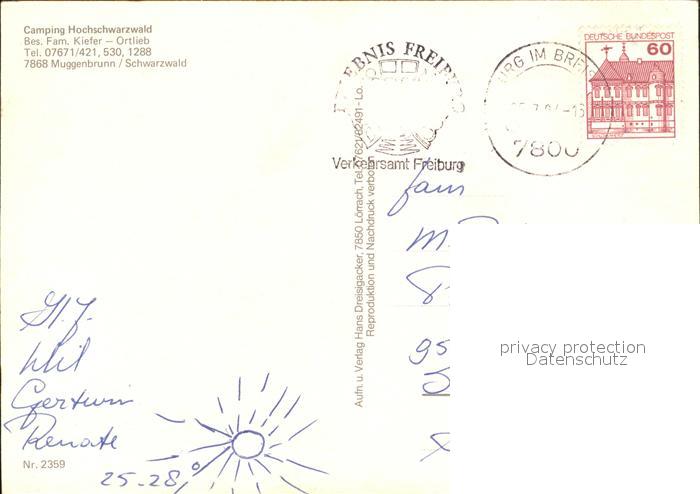 Camping Hochschwarzwald
Bes. Fam. Kiefer – Ortlieb
Tel. 07671/421, 530, 1288
7868 Muggenbrunn / Schwarzwald
ERLEBNIS FREIBURG
Verkehrsamt Freiburg
BURG IM BREIS
7800
DEUTSCHE BUNDESPOST
60
Aufn. u. Verlag Hans Dreisigacker, 7850 Lörrach, Tel. 07621/82491 - Lo.
Reproduktion und Nachdruck verboten
Fam
95
privacy protection
Datenschutz
Gertwin
Renate
25-28°
Nr. 2359